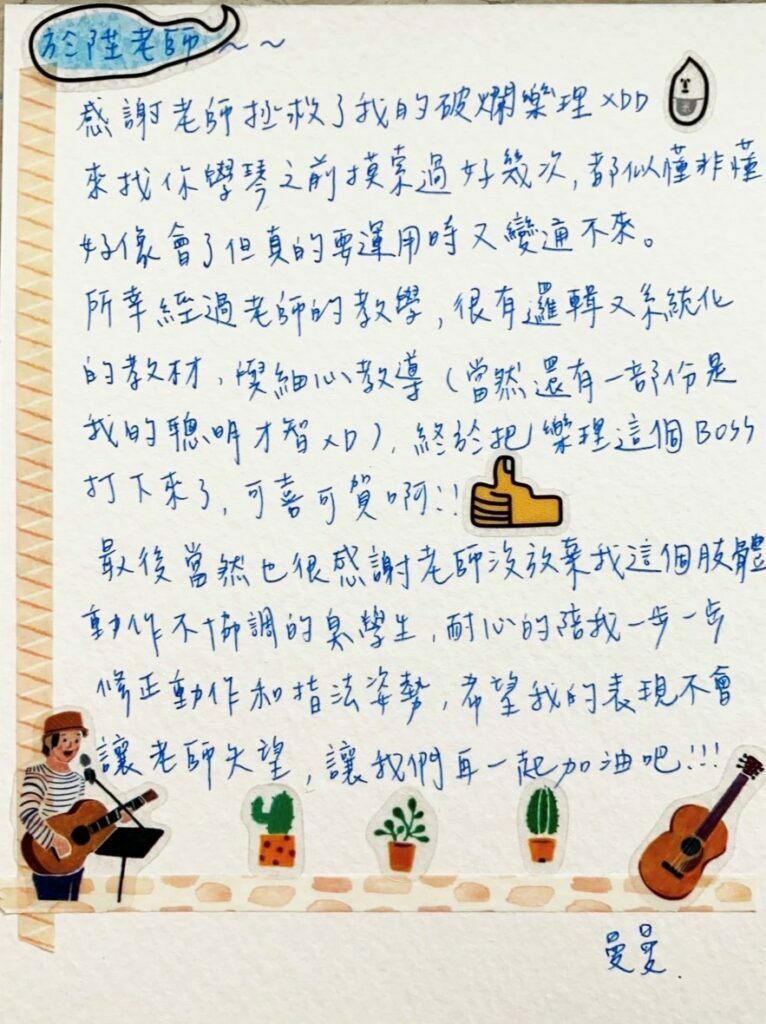 於陞老師~~
感謝老師拯救了我的破爛樂理XDD
來找你學琴之前摸索過好幾次,都似懂非懂
好像會了但真的要運用時又變通不來。
所幸經過老師的教學,很有邏輯又系統化
的教材,偰細心教導(當然還有一部份是
我的聰明才智XD),終於把樂理這個BOSS
打下來了,可喜可賀啊!!
最後當然也很感謝老師沒放棄我這個肢體
動作不協調的臭學生,耐心的陪我一步一步
修正動作和指法姿勢,希望我的表現不會
讓老師失望,讓我們再一起加油吧!!!
曼曼.